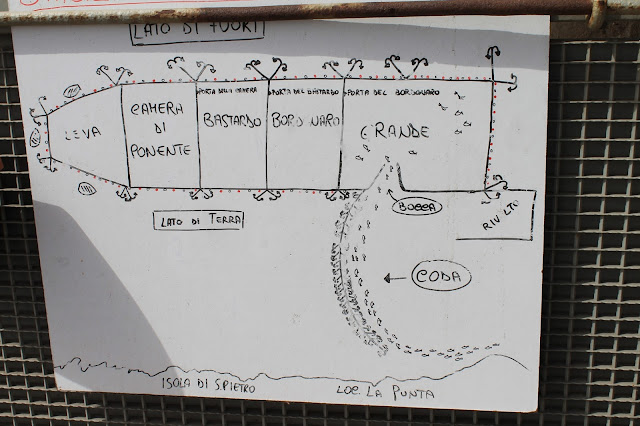 LATO DI FUORI
PORTA DELLA CAMERA
PORTA DEL BASTARDO
PORTA DEL BORDONARO
LEVA
CAMERA
DI
PONENTE
BASTARDO
BORDONARO
GRANDE
LATO DI TERRA
BOCCA
RIVOLTO
CODA
ISOLA DI S.PIETRO
LOC. LA PUNTA